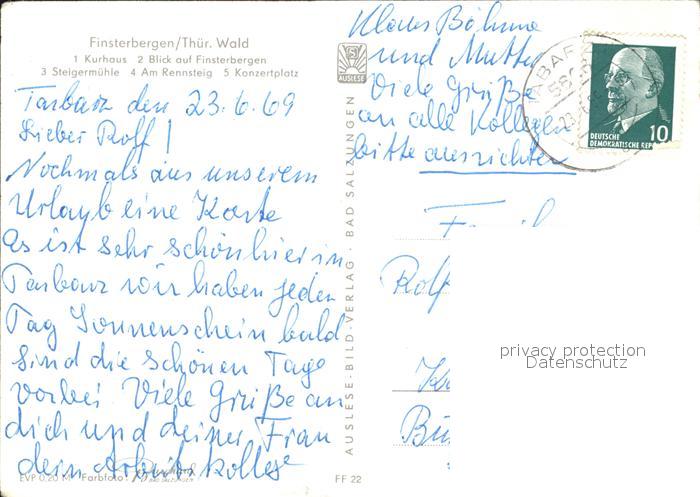 Finsterbergen/Thür. Wald
1 Kurhaus 2 Blick auf Finsterbergen
3 Steigermühle 4 Am Rennsteig 5 Konzertplatz
Tarbarz den 23.6.69
Lieber Rolf!
Nochmals aus unserem
Urlaub eine Karte
Es ist sehr schön hier in
Tarbarz wir haben jeden
Tag Sonnenschein bald
sind die schönen Tage
vorbei Viele Grüße an
dich und deiner Frau
dein Arbeitskollege
Klaus Böhme
und Mutter
Viele Grüße
an alle Kollegen
bitte ausrichten
AUSLESE
AUSLESE-BILD-VERLAG · BAD SALZUNGEN
TABAR
DEUTSCHE
DEMOKRATISCHE REP
10
F
Rolf
privacy protection
Datenschutz
EVP 0,20 M Farbfoto
BAD SALZUNGEN
FF 22